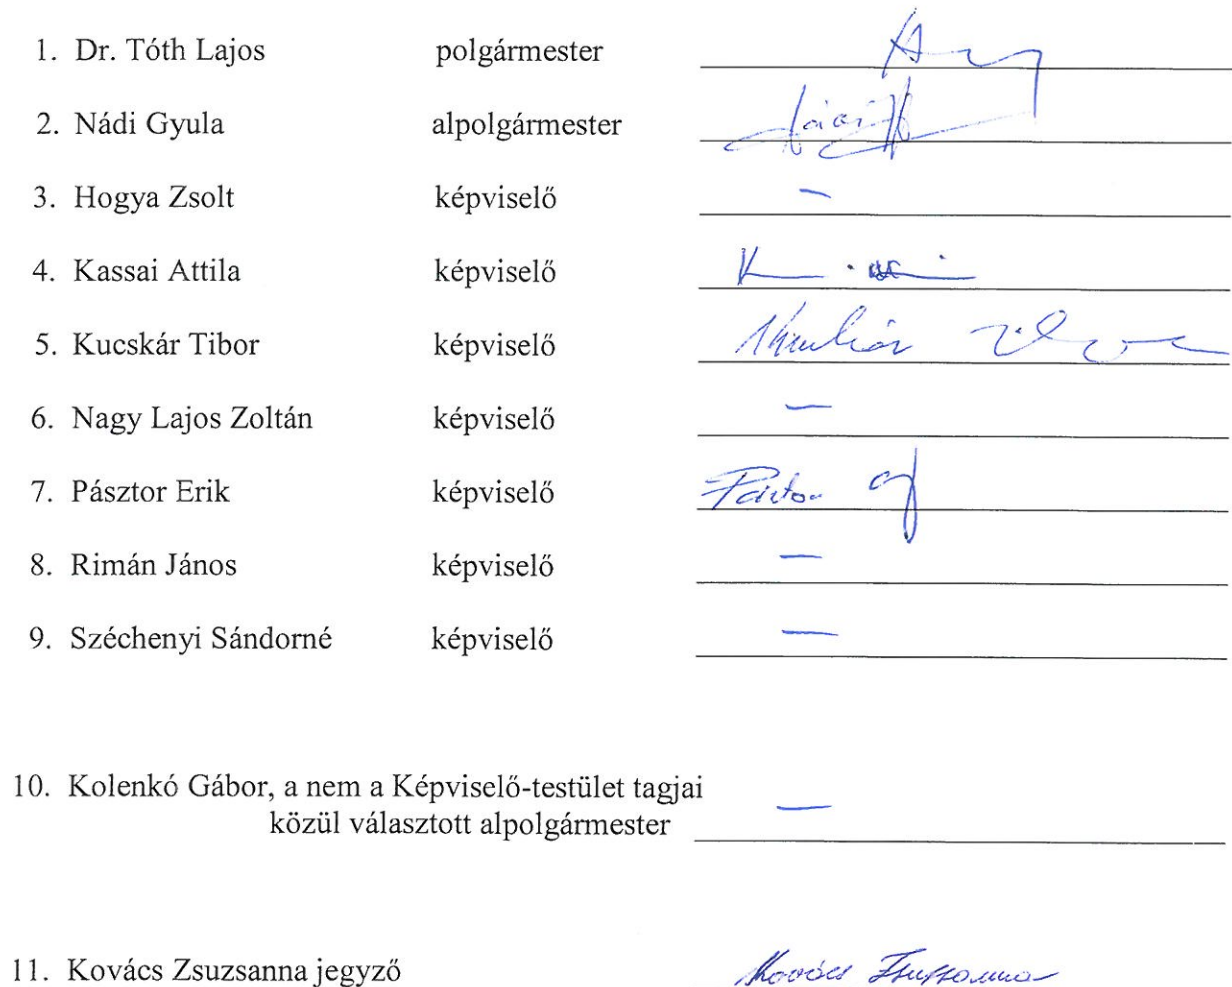 1. Dr. Tóth Lajos polgármester
2. Nádi Gyula alpolgármester
3. Hogya Zsolt képviselő –
4. Kassai Attila képviselő
5. Kucskár Tibor képviselő
6. Nagy Lajos Zoltán képviselő –
7. Pásztor Erik képviselő
8. Rimán János képviselő –
9. Széchenyi Sándorné képviselő –
10. Kolenkó Gábor, a nem a Képviselő-testület tagjai
közül választott alpolgármester –
11. Kovács Zsuzsanna jegyző Kovács Zsuzsanna